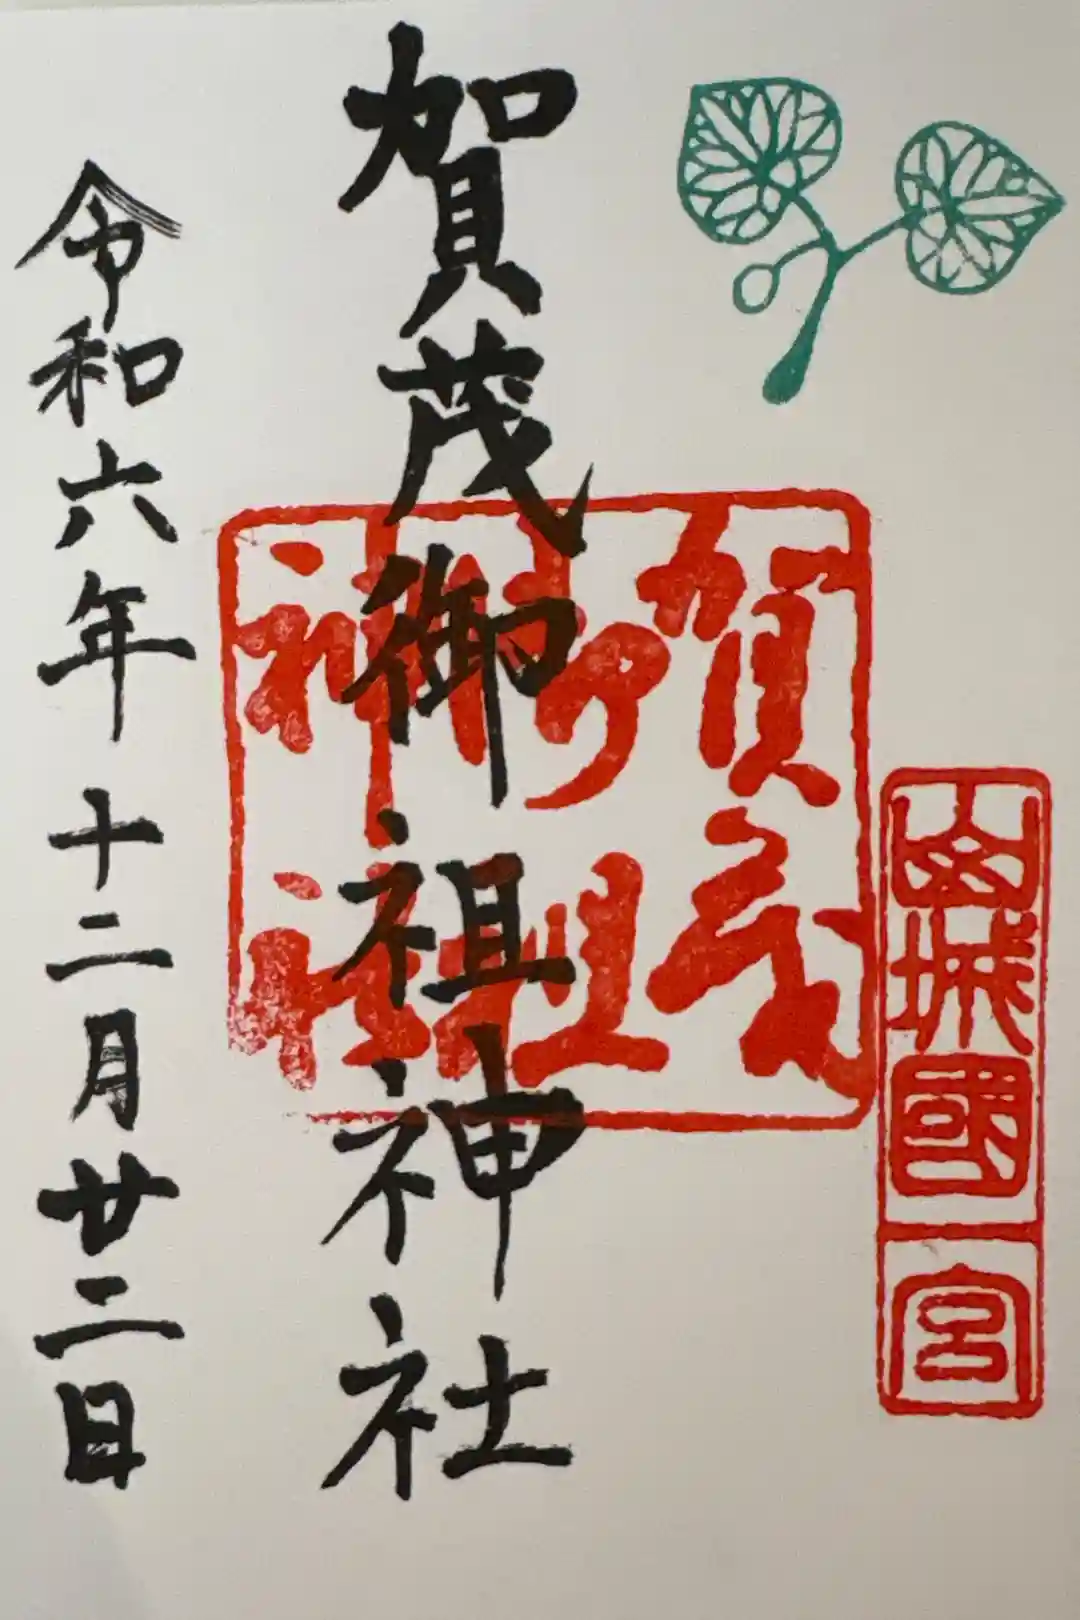 山城國一宮
賀茂御祖神社
賀茂
御祖
神社
令和六年十二月廿二日